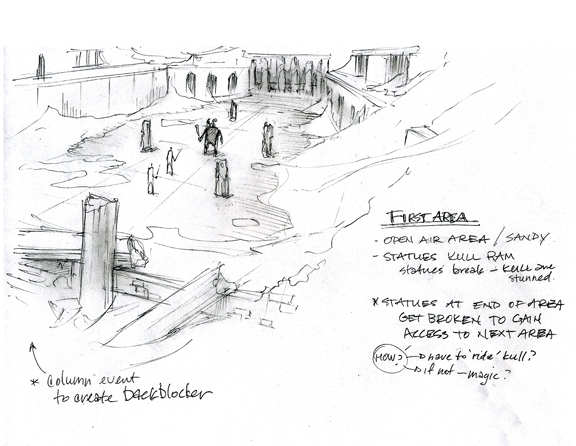 FIRST AREA
- OPEN AIR AREA / SANDY
- STATUES KULL RAM
statues break - KULL are
stunned.
* STATUES AT END OF AREA
GET BROKEN TO GAIN
ACCESS TO NEXT AREA
HOW? → have to 'ride' kull?
→ if not - magic?
* Column event
to create backblocker